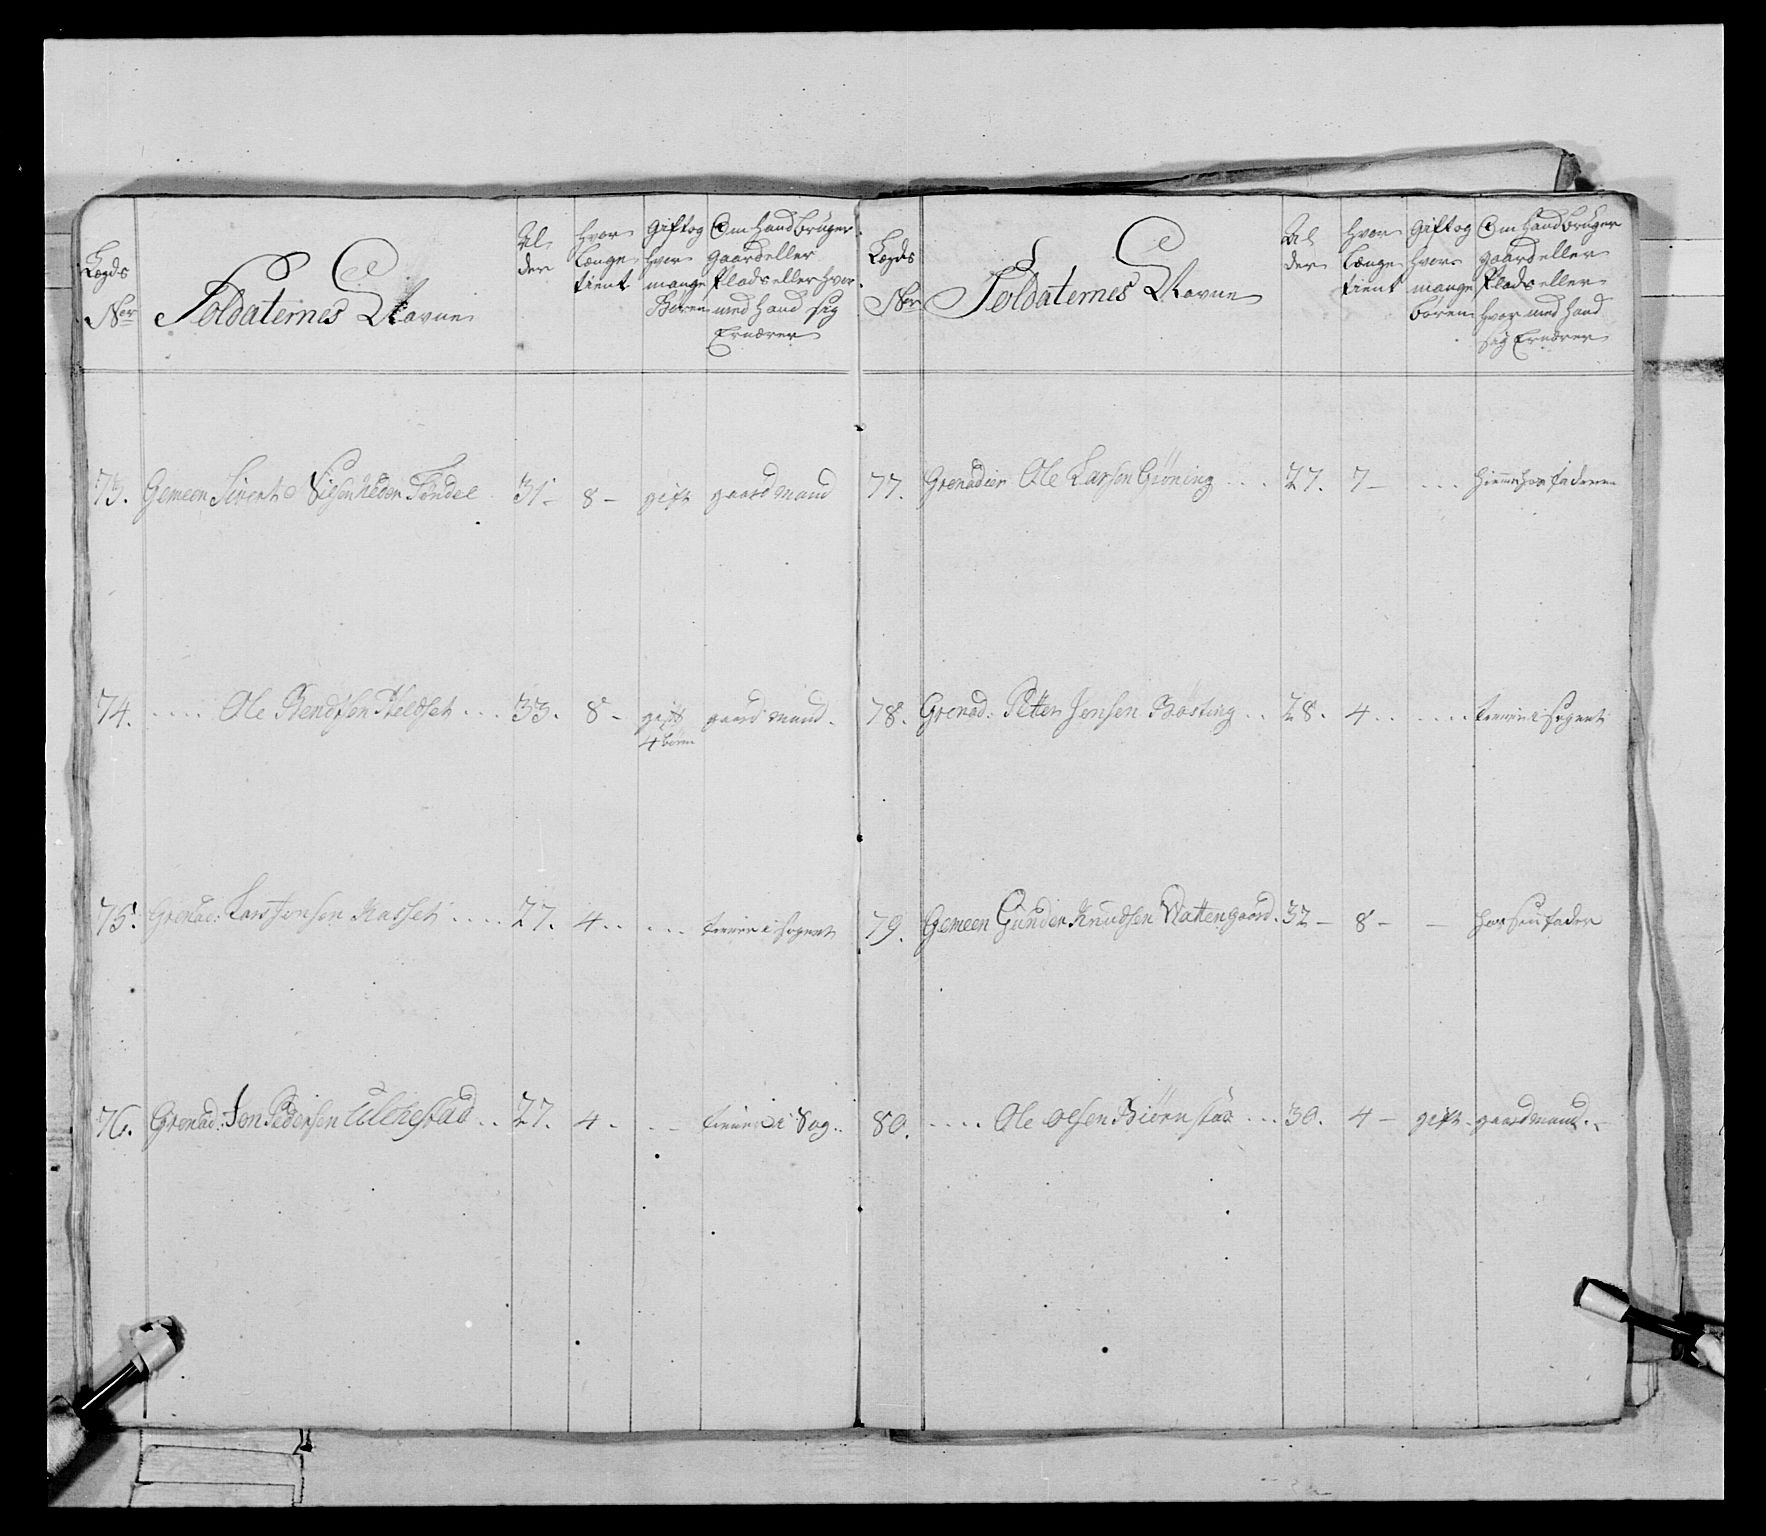 Lægds
Ner
Soldaternes Navne
Al
der
Hvor
Længe
tient
Gift og
hvor
mange
Børen
Om Hand bruger
gaard eller
Plads eller hvor
med hand sig
Ernærer
73. Gemeen Nilsen Neder Tøndel 31 - 8 - gift gaard mand
74. ..... Ole Bendtsen ... 33. 8 - gift gaard mand.
4 børen
75. Grenad: Lars Jonsen Kasset .... 27. 4 .. ... tiener i sognet
76. Grenad: Jon Pedersen .. 27. 4 . . - tiener i Sog..
Lægds
Ner
Soldaternes Navne
Al
der
Hvor
Længe
tient
Gift og
hvor
mange
børen
Om Hand bruger
gaard eller
Plads eller
hvor med hand
sig Ernærer
77. Grenadier Ole Larsen Grøning ... 27. 7 - .... hiemme hos faderen
78. Grenad: Petter Jensen Bøsting .. 28. 4 .. ..... tiener i sognet
79. Gemeen Gunder Knudsen Wattengaard. 32 - 8 - - hos sin fader
80. .... Ole Olsen Biørnstad ... 30. 4 - gift - gaard mand. -